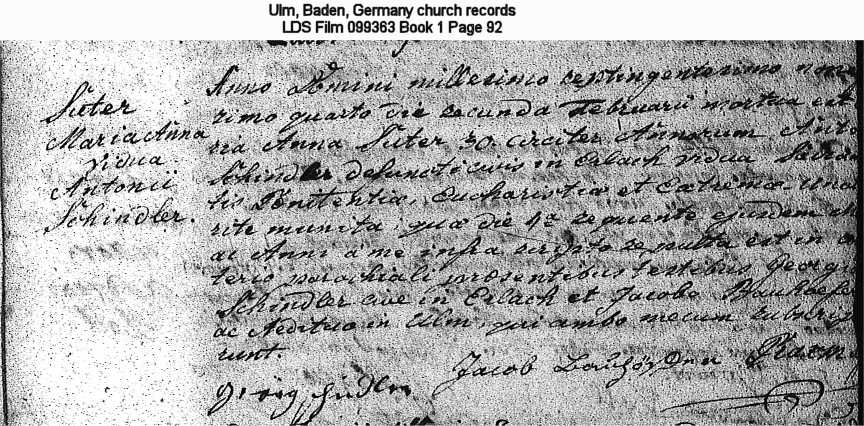 Ulm, Baden, Germany church records
LDS Film 099363 Book 1 Page 92
Suter
Maria Anna
vidua
Antonii
Schindler.
Anno Domini millesimo septingentesimo nona
simo quarto die secunda Februarii mortua est
ria Anna Suter 30. circiter Annorum Anto
Schindler defuncti civis in Erlach vidua
tis Penitentia, Eucharistia et Extrema Unc
rite munita; qua die 4ta sequente ejusdem
ac Anni a me infra scripto sepulta est in
terio parochiali praesentibus testibus Georgi
Schindler cive in Erlach et Jacobo
ac Aedituo in Ulm, qui ambo mecum subscrip
runt.
Jacob